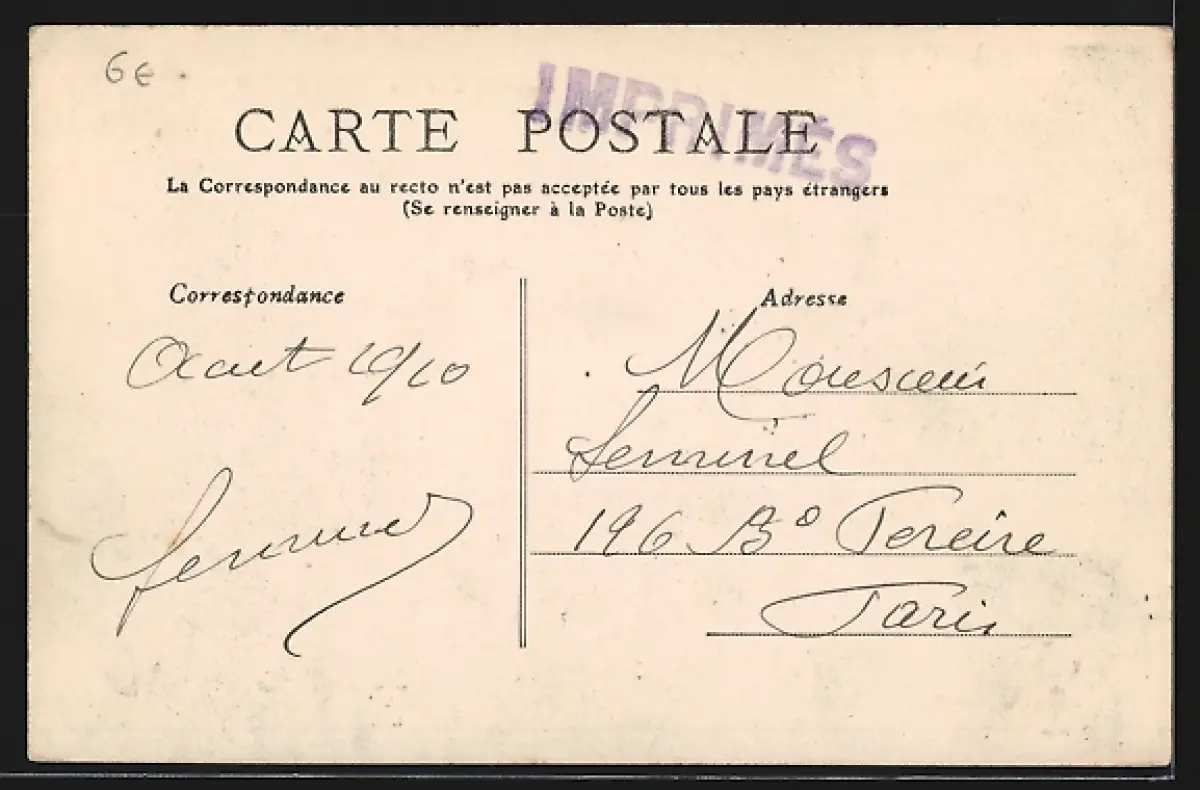 6€
IMPRIMÉS
CARTE POSTALE
La Correspondance au recto n'est pas acceptée par tous les pays étrangers
(Se renseigner à la Poste)
Correspondance
Adresse
Aout 1910
Monsieur
196 Bd Pereire
Paris